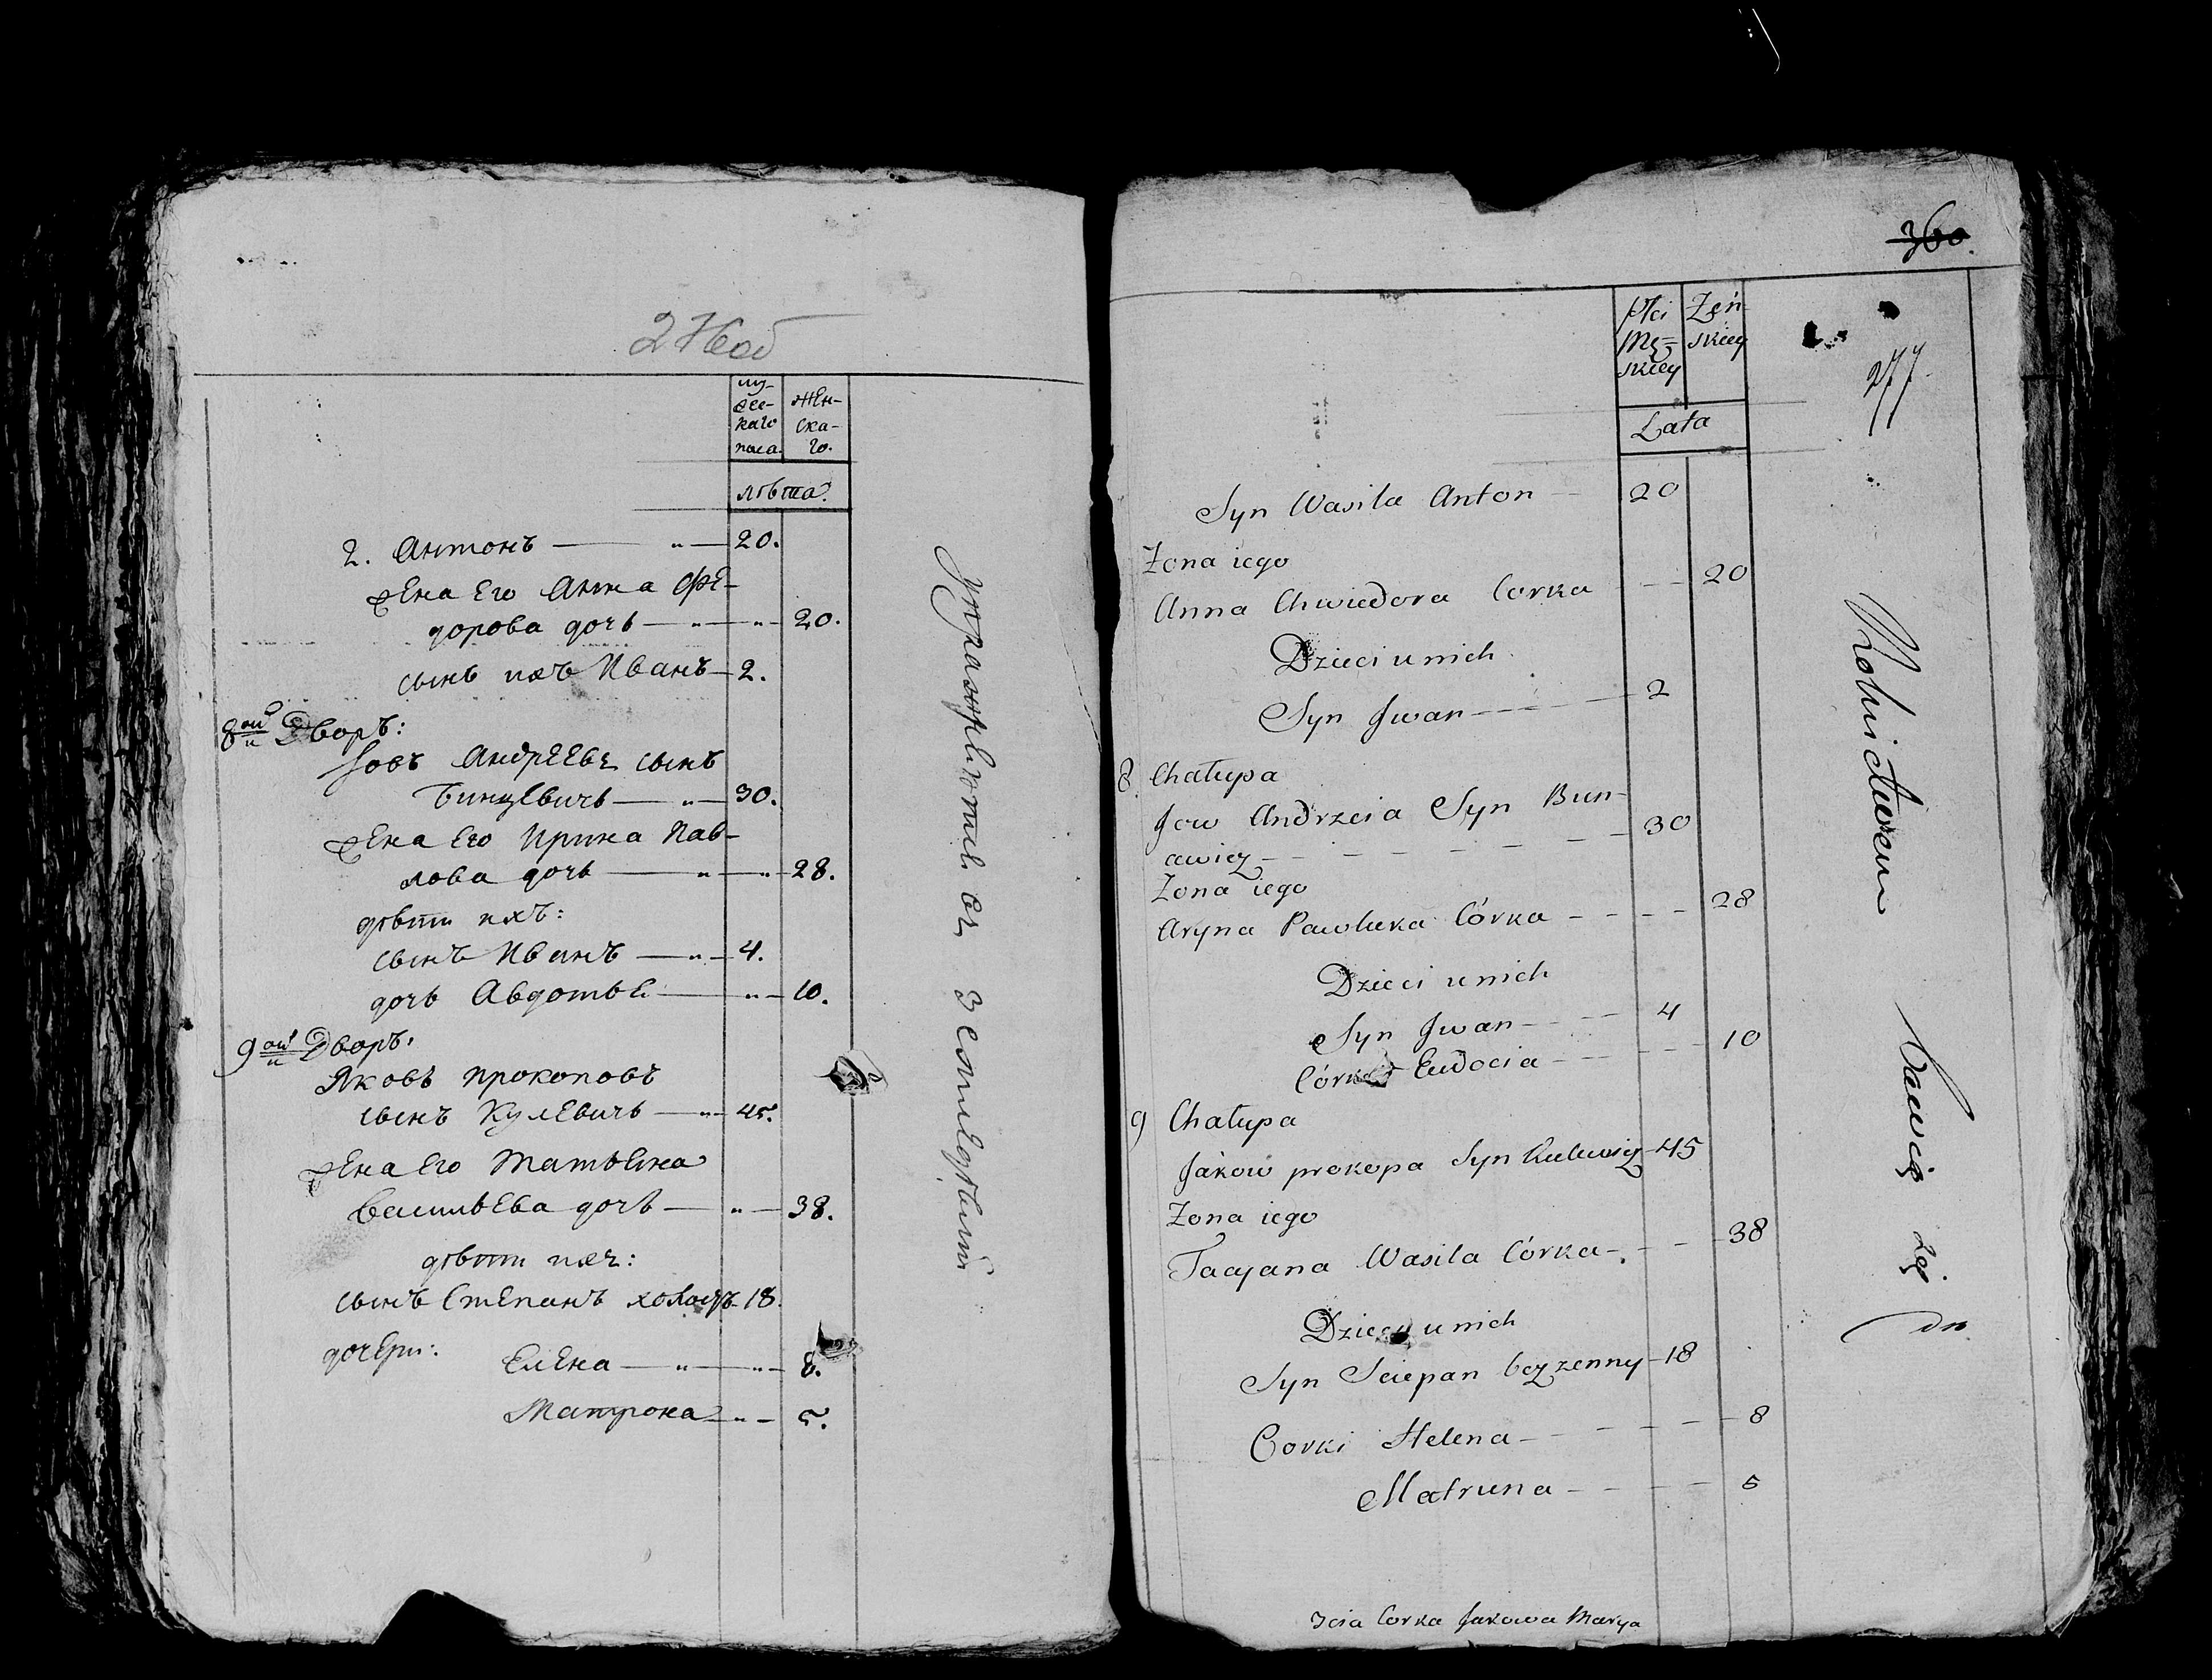 276об
муж-
ес-
каго
пола.
жен-
ска-
го.
лѣта.
2. Антонъ — " — 20.
жена его Анна Фе-
дорова дочь — " — " — 20.
сынъ ихъ Иванъ — 2.
8ой Дворъ:
Іовъ Андреевъ сынъ
Бунцевичъ — " — 30.
жена его Ирина Пав-
лова дочь — " — " — 28.
дѣти ихъ:
сынъ Иванъ — " — 4.
дочь Авдотья — " — 10.
9ой Дворъ.
Яковъ Прокоповъ
сынъ Кулевичъ — " — 45.
жена его Татьяна
Васильева дочь — " — 38.
дѣти ихъ:
сынъ Степанъ холостъ — 18.
дочери: Елена — " — " — 8.
Матрона — " — 5.
Упражняются въ земледѣліи
360.
277
Płci
Męz=
skiey
Żeń-
skiey
Lata
Syn Wasila Anton — 20
Zona iego
Anna Chwiedora Corka — — 20
Dzieci u nich
Syn Jwan — — — 2
8. Chałupa
Jow Andrzeia Syn Bun-
awicz — — — — — 30
Zona iego
Aryna Pawluka Córka — — — — 28
Dzieci u nich
Syn Jwan — — — 4
Córka Eudocia — — — — 10
9 Chałupa
Jakow prokopa Syn Kulewicz — 45
Zona iego
Taciana Wasila Córka — — — 38
Dzieci u nich
Syn Sciepan bezzenny — 18
Corki Helena — — — — 8
Matruna — — — — 5
3cia Corka Jakowa Marya
Rolnictwem bawią się